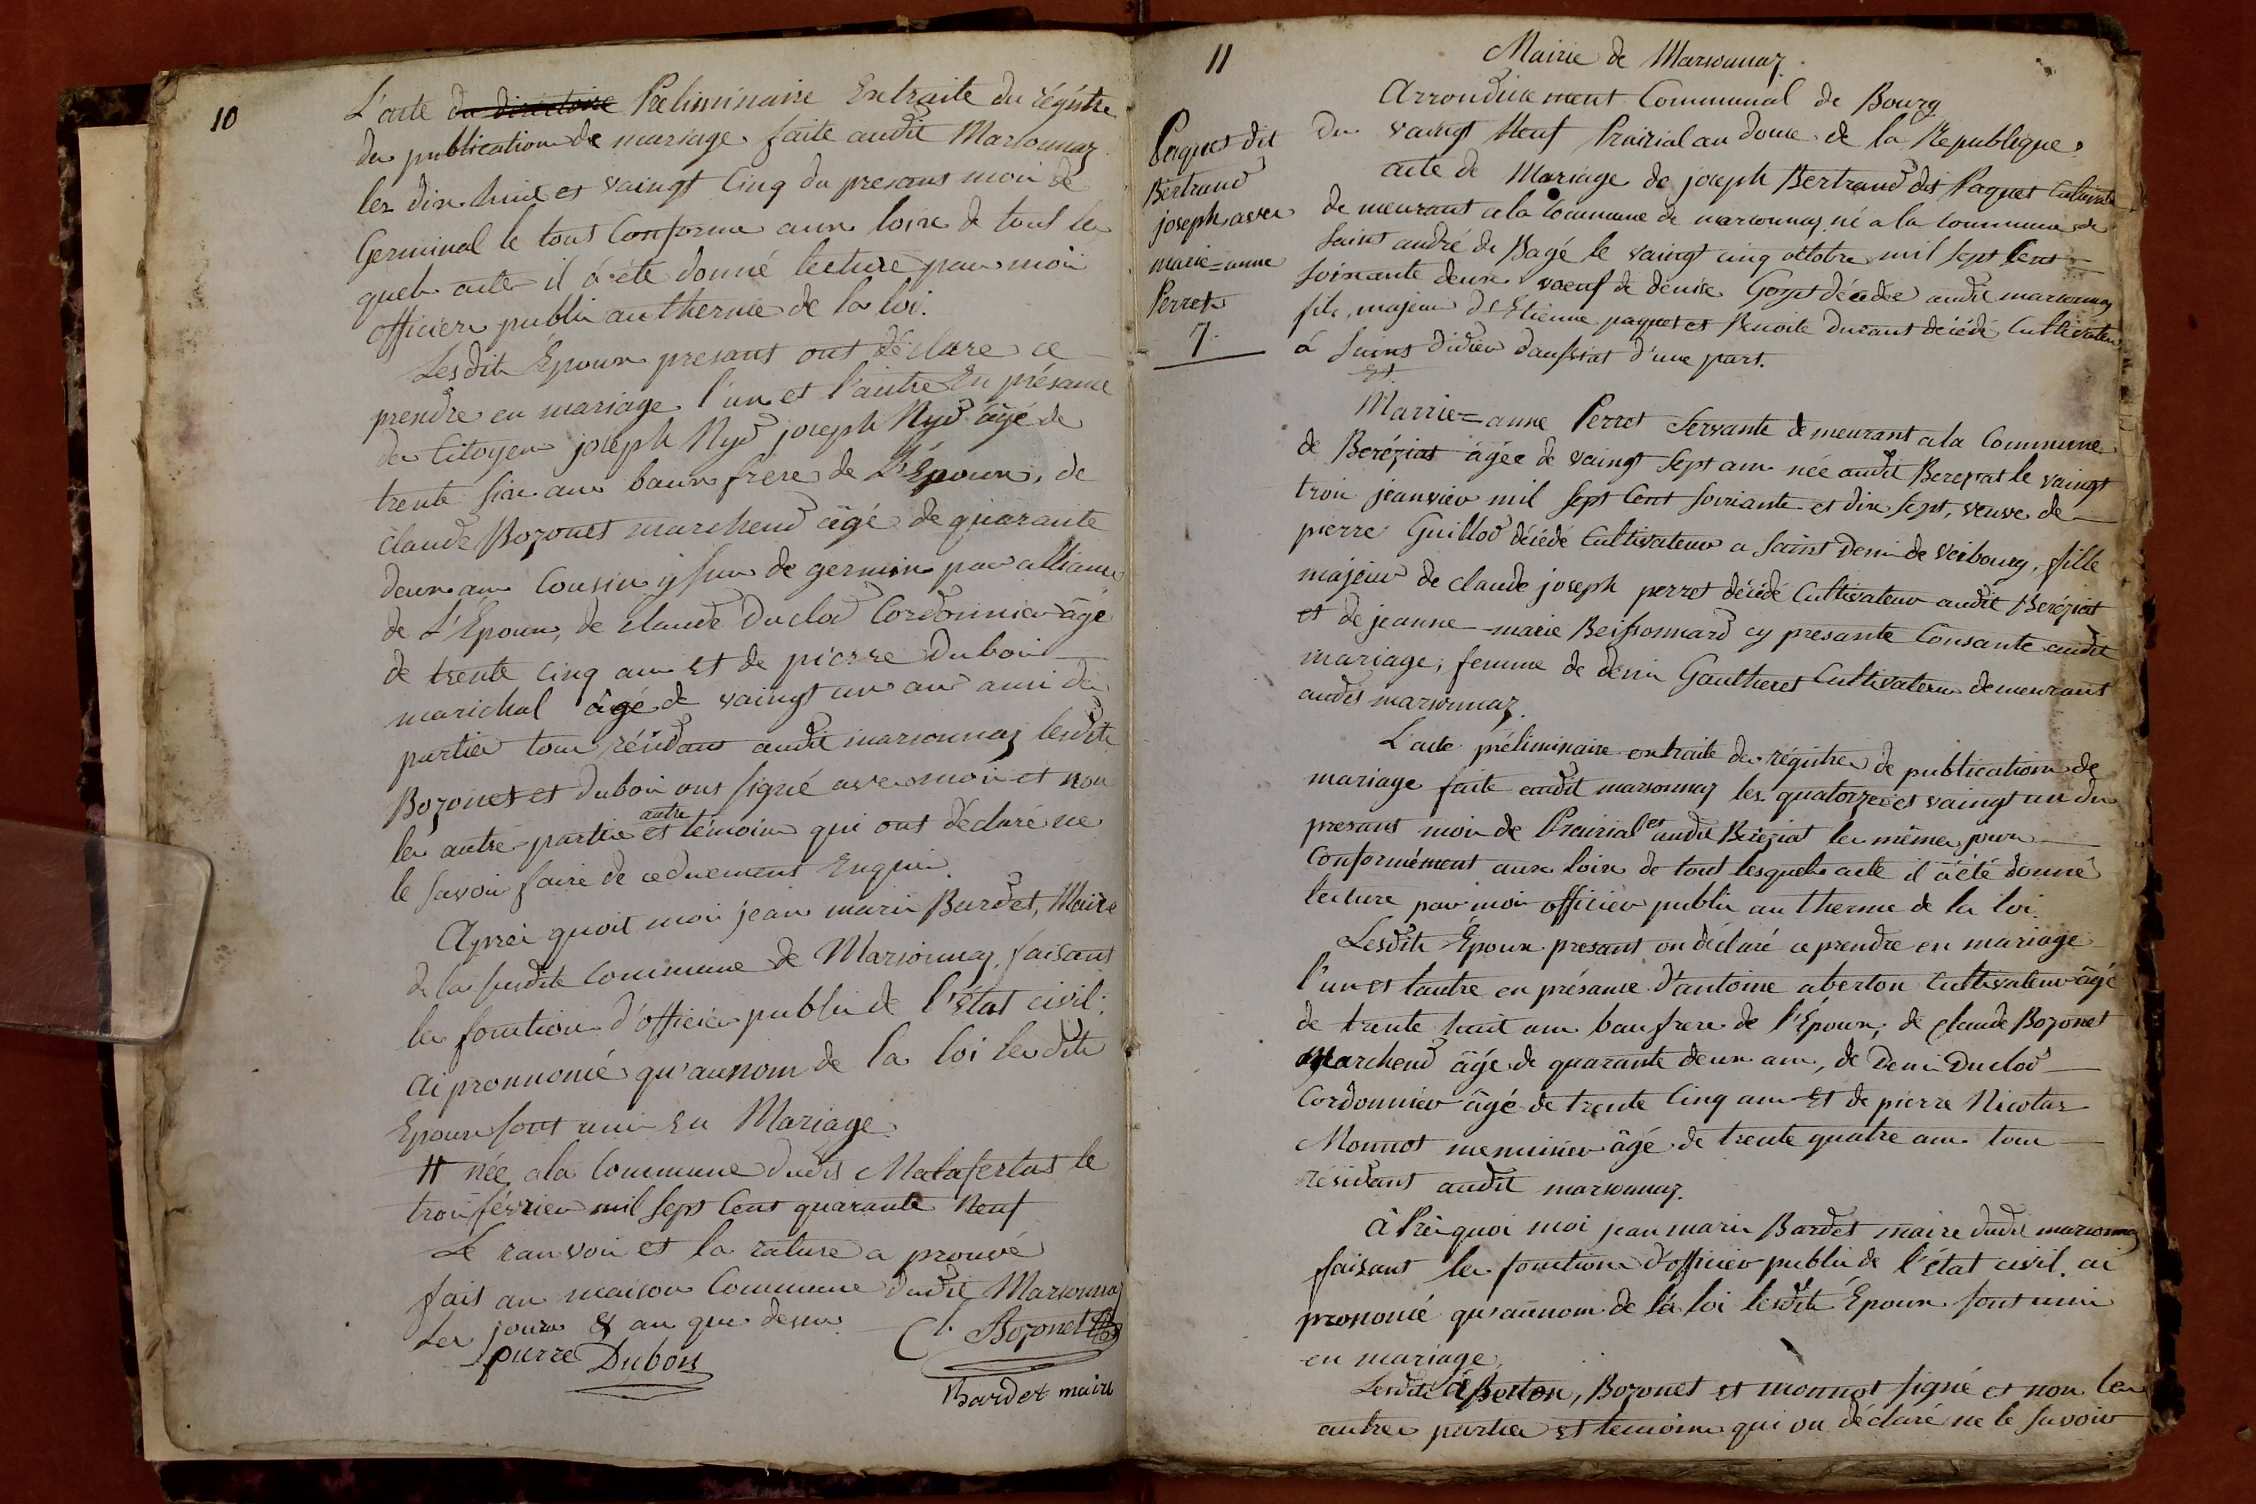 10
L'acte du directoire Preliminaire Extraite du régistre
de publication de mariage faite audit Marsonnaz
les dix huit et vaingt Cinq du presant moi de
Germinal le tout Conforme aux loix de tout les
quels acte il a été donné lecture par moi
officier public au therme de la loi.
Lesdits Epoux presant ont déclare ce
prendre en mariage l'un et l'autre En présance
de Citoyen joseph Nyd joseph Nyd âgé de
trente six ans baux frere de L'Epoux, de
claude Bozonet marchend âgé de quarante
deux ans Cousin yssus de germin par alliance
de L'Epoux, de claude Duclod Cordonnier âgé
de trente cinq ans Et de pierre Duboi
marichal âgé de vaingt un ans ami de
partier tous résidant audit marsonnaz lesdits
Bozonet et Duboi ont signé avec moi et non
les autre partie et autre témoins qui ont déclaré ne
le savoir faire de ce duement Enquis.
Après quoit moi jean marie Bardet, Maire
de la susdite Commune de Marsonnaz faisant
les fonction d'officier public de l'état civil.
ai prononcé qu'aunom de la loi lesdits
Epoux sont unis En Mariage.
# née a la Commune dudit Malafertas le
troi février mil sept Cent quarante Neuf
Le ranvoi et la rature a prouvé
fait au maison Commune dudit Marsonna
Les jour & an que dessu
pierre Dubois
Cl. Bozonet
Bardet maire
11
Mairie de Marsonnaz.
Arrondissement Communal de Bourg
Paquet dit
Bertrand
joseph avec
marie=anne
Perret
7.
Du vaingt Neuf Prairial an douze de la Republique.
acte de Mariage de joseph Bertrand dit Paquet Cultivate
demeurant a la Commune de marsonnaz né a la Commune de
Saint andré de Bagé le vaingt cinq octobre mil sept Cent
soixante deux voeuf de denise Goyet décédée audit marsonnaz
fils, majeur d'Etienne paquet et Benoite Durant décédé Cultivateur
à Saint Didier daussiat d'une part.
Et.
Marrie=anne Perret Servante demeurant a la Commune
de Beréziat âgée de vaingt Sept ans née audit Bereziat le vaingt
troi jeanvier mil Sept Cent soixante et dix sept, veuve de
pierre Guillod décédé Cultivateur a Saint Deni de Veibourg, fille
majeur de claude joseph perret décédé Cultivateur audit Beréziat
et de jeanne-marie Beissonnard cy presante Consante audit
mariage, femme de deni Gautheret Cultivateur demeurant
audit marsonnaz.
L'acte préliminaire extraite des régistre de publication de
mariage faite audit marsonnaz les quatorze et vaingt un du
presant moi de Prairial et audit Bereziat les même jour
Conformément aux loix de tout lesquels acte il a été donné
lecture par moi officier public au therme de la loi.
Lesdits Époux presant on déclaré ce prendre en mariage
l'un et lautre en présance d'antoine aberton Cultivateur âgé
de trente huit ans bau frere de l'Époux, de claude Bozonet
Marchend âgé de quarante deux ans, de Deni Duclod
Cordonnier âgé de trente Cinq ans Et de pierre Nicolas
Monnot menuisier âgé de trente quatre ans tous
résidant audit marsonnaz.
à Prèi quoi moi jean marie Bardet maire dudit marsonnaz
faisant les fonction d'officier public de l'état civil. ai
prononcé qu'aunom de la loi lesdits Époux sont unis
en mariage.
Lesdits aBerton, Bozonet et monnot signé et non les
autres parties et temoins qui on déclaré ne le savoir